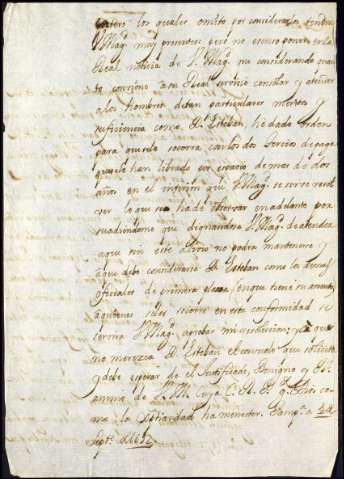 los quales omito por considerarlos
V. Mag.d muy presentes pero no escuso poner en la
Real noticia de V. Mag.d que considerando quan
to combiene a su Real servicio consolar y atraer
a los hombres de tan particulares meritos y
suficiencia como D. Esteban he dado orden
para que se le socorra con los dos tercios de paga
que se le han librado por espacio de mas de dos
años en el interin que V. Mag.d se sirve resol
ver lo que se ha de observar en adelante per
suadiendome que dignandose V. Mag.d de atender a
que sin este alivio no podra mantenerse y
a que debe considerarse D. Esteban como los demas
oficiales de primera plana en que tiene su
a quienes se les socorre en esta conformidad se
servira V. Mag.d aprobar mi resolucion; y a que
no merezca D. Esteban el consuelo que solicita
y debe esperar de el Justificado, Benigno y Rl.
animo de V. M. Cuya C. R. P. g.e Dios co
mo la Christiandad ha menester. Pamp.na a
Sept.e de 1692